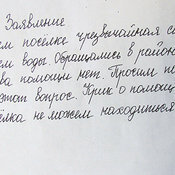 Заявление
ем посёлке чрезвычайная си
ем воды. Обращались в район
ва помощи нет. Просим по
этот вопрос. Крик о помощ
ёлка не можем находиться